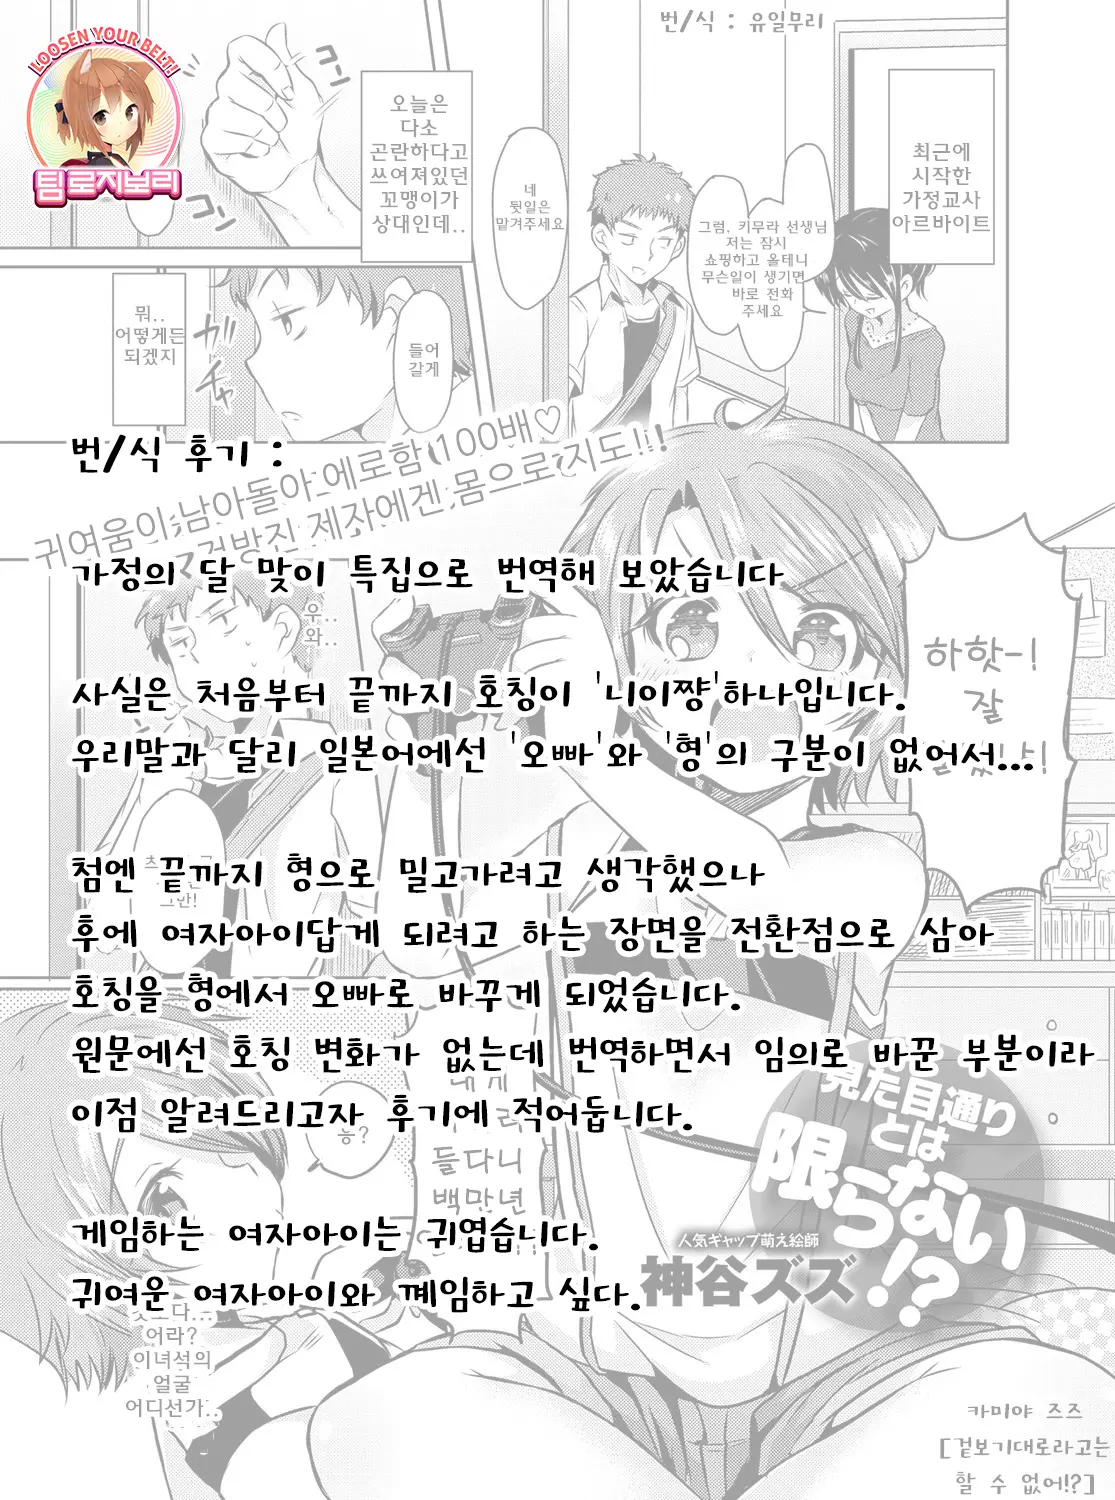 번/식 : 유일무리
LOOSEN YOUR BELT!
팀 로지보리
최근에
시작한
가정교사
아르바이트
그럼, 키무라 선생님
저는 잠시
쇼핑하고 올테니
무슨일이 생기면
바로 전화
주세요
네
뒷일은
맡겨주세요
오늘은
다소
곤란하다고
쓰여져있던
꼬맹이가
상대인데..
コン
コン
들어
갈게
ガチャ
뭐..
어떻게든
되겠지
번/식 후기 :
가정의 달 맞이 특집으로 번역해 보았습니다
우..
와..
하핫-!
잘
사실은 처음부터 끝까지 호칭이 '니이쨩'하나입니다.
우리말과 달리 일본어에선 '오빠'와 '형'의 구분이 없어서...
첨엔 끝까지 형으로 밀고가려고 생각했으나
후에 여자아이답게 되려고 하는 장면을 전환점으로 삼아
호칭을 형에서 오빠로 바꾸게 되었습니다.
원문에선 호칭 변화가 없는데 번역하면서 임의로 바꾼 부분이라
이점 알려드리고자 후기에 적어둡니다.
능?
들다니
백만년
게임하는 여자아이는 귀엽습니다.
귀여운 여자아이와 계임하고 싶다.
어라?
이녀석의
얼굴
어디선가..
見た目通り
とは
限らない!?
人気ギャップ萌え絵師
神谷ズズ
카미야 즈즈
[겉보기대로라고는
할 수 없어!?]